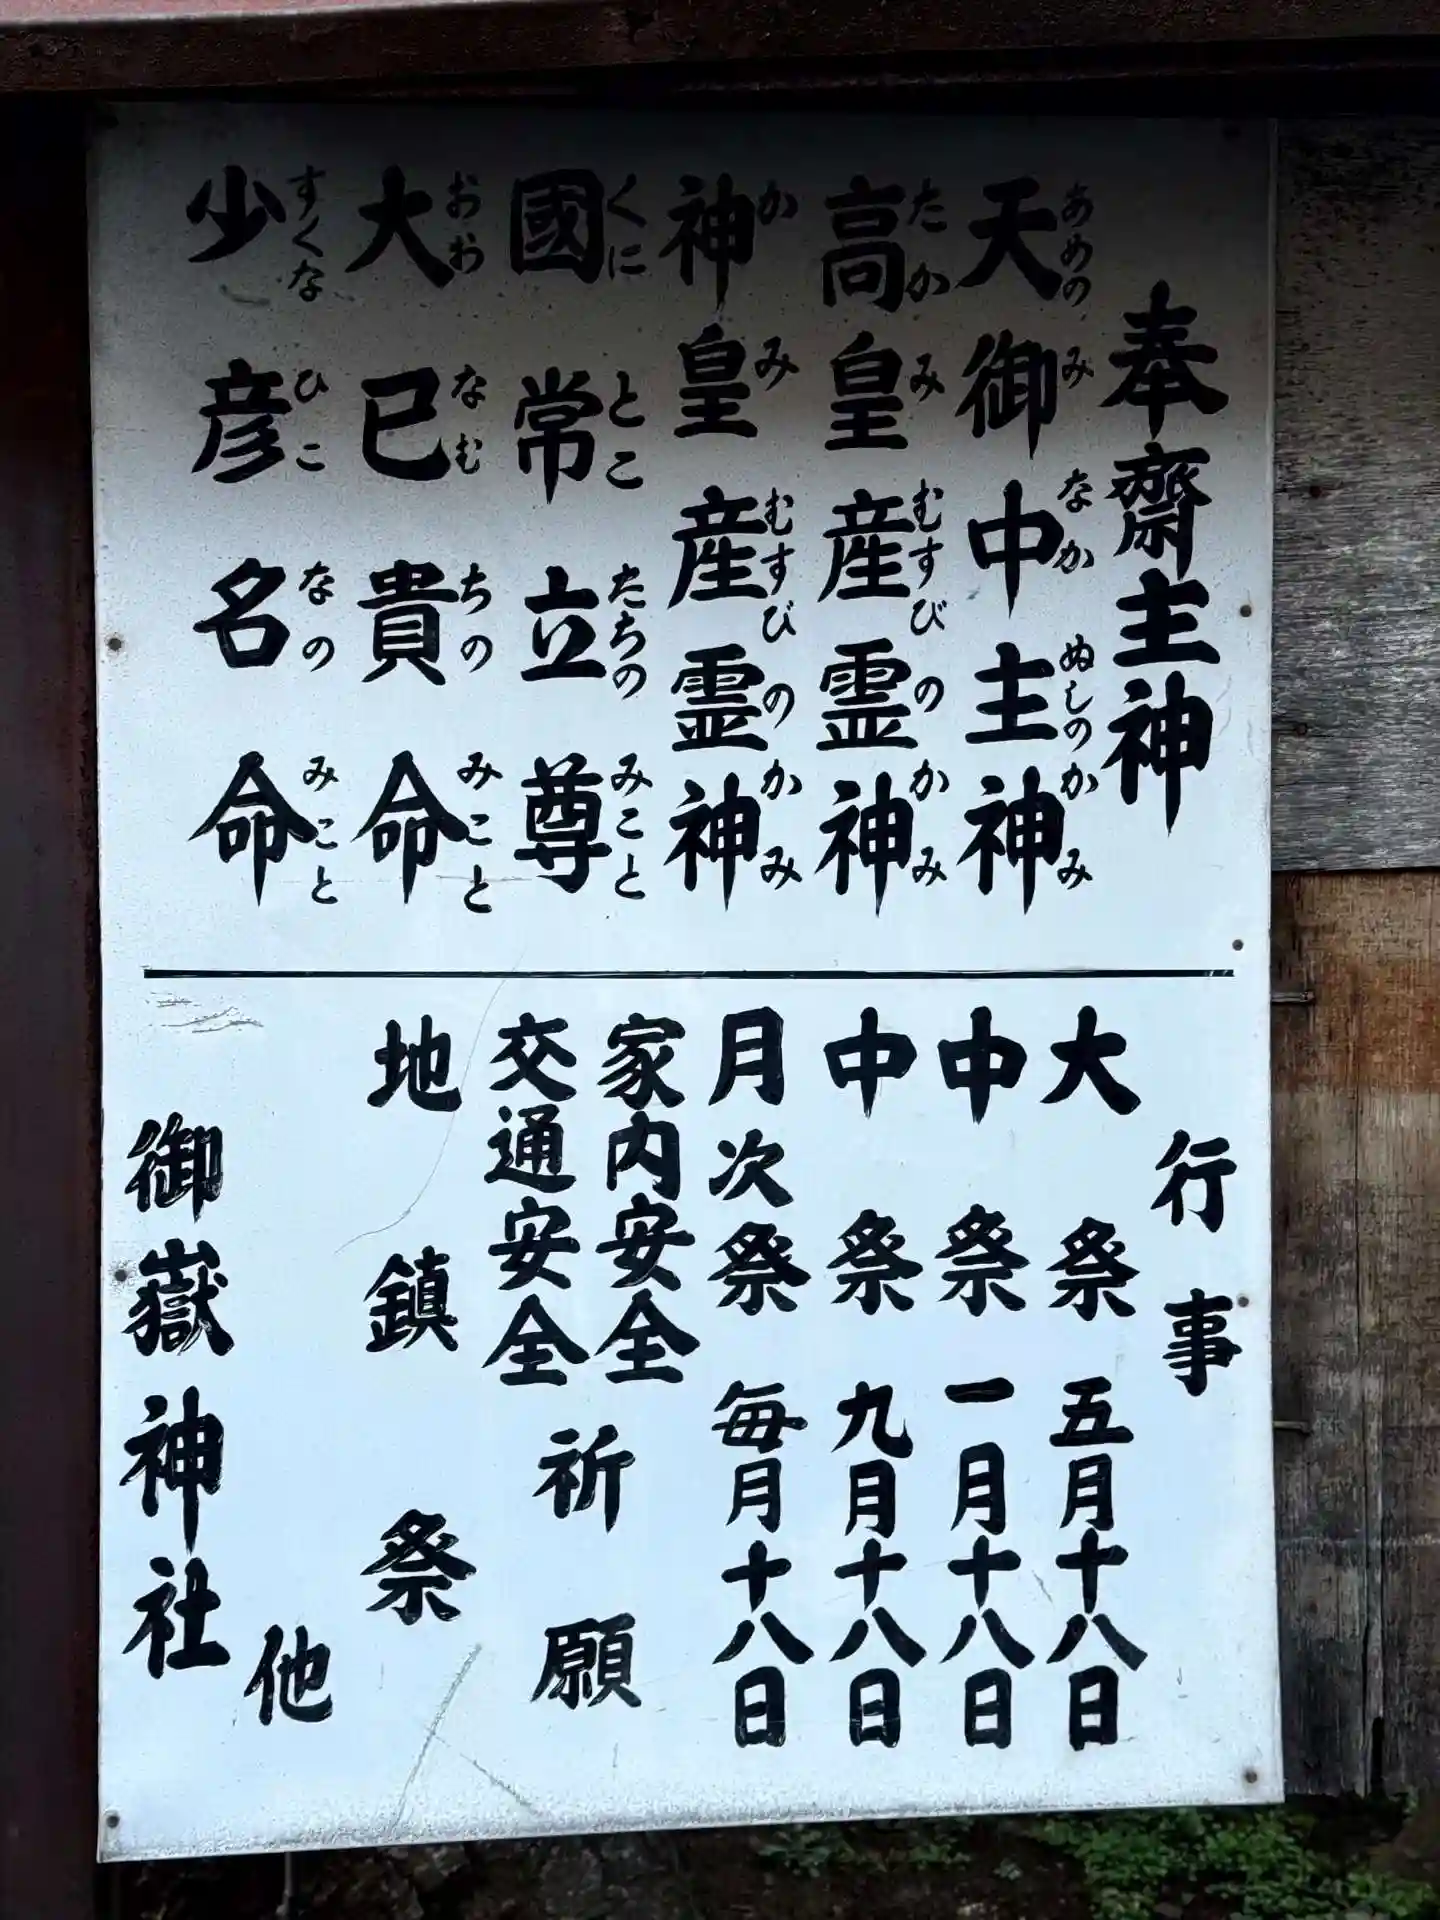 奉齋主神
天御中主神
あめの み なか ぬしの かみ
高皇産霊神
たか み むすび の かみ
神皇産霊神
か み むすび の かみ
國常立尊
くに とこ たちの みこと
大己貴命
おお なむ ちの みこと
少彦名命
すくな ひこ なの みこと
行事
大祭 五月十八日
中祭 一月十八日
中祭 九月十八日
月次祭 毎月十八日
家内安全
交通安全
祈願
地鎮祭
他
御嶽神社